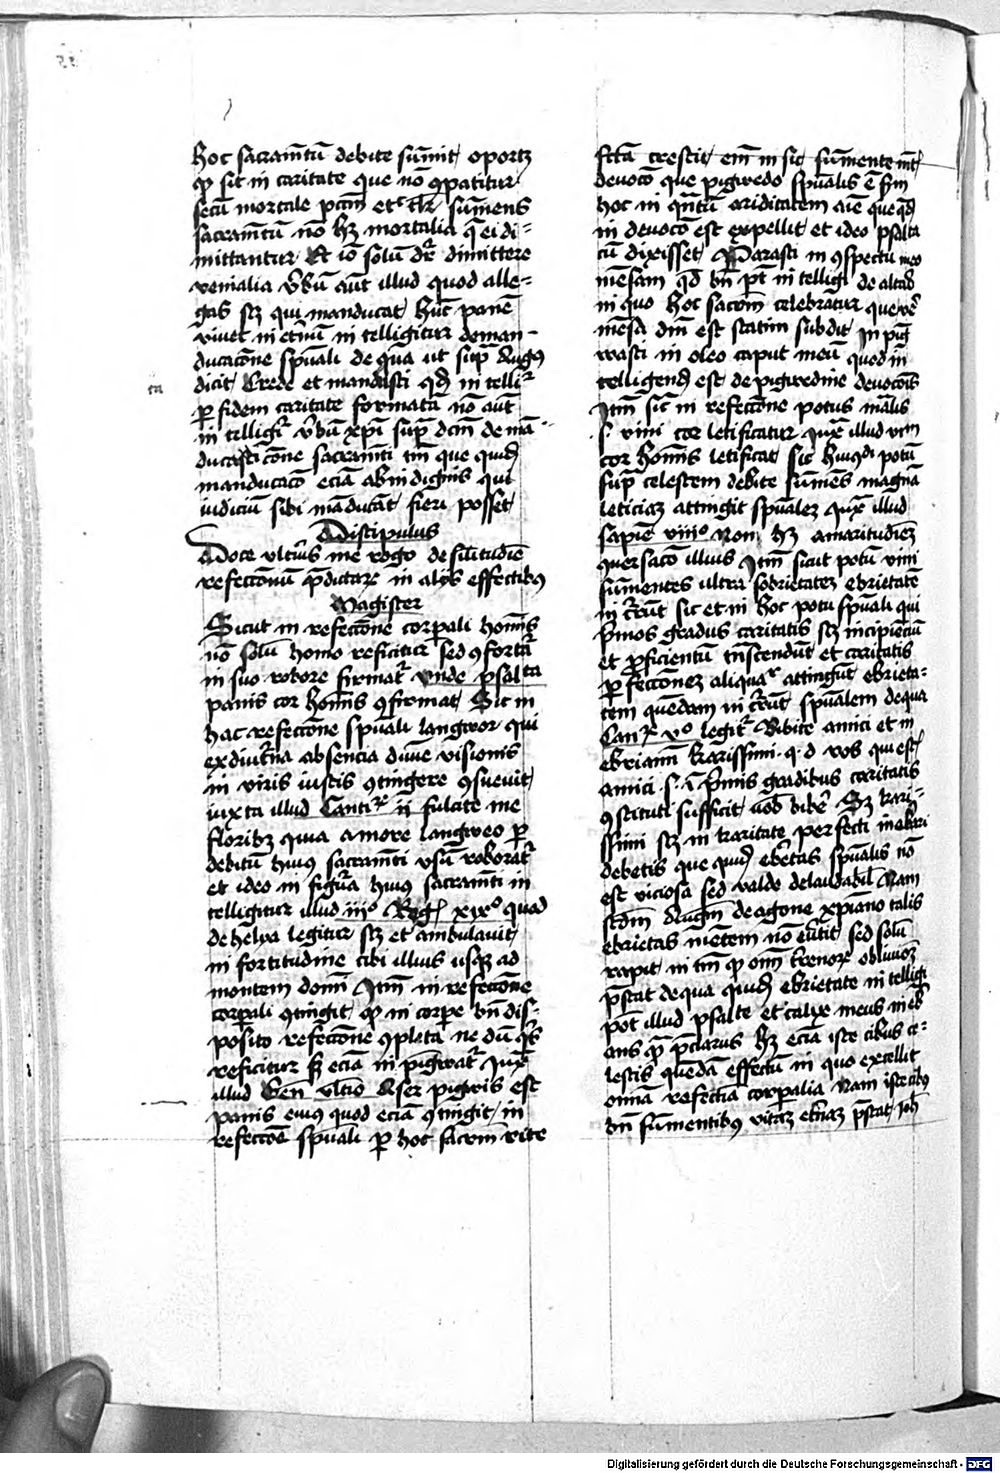 hoc sacramētū debite sūmit oportꝫ
ꝙ sit in caritate que nō ꝯpatitur
secū mortale pccm̄ sūmens
sacramētū nō hꝫ mortalia q̄ ei di-
mittantur Et iō solū dr̄ dimittere
venialia v̄bū aūt illud quod alle-
gas scꝫ qui manducat hūc panē
vivet in et̄nū in telligitur de man-
ducacōne spūali de qua ut sup̄ Augꝰ
dicit Crede et manducasti qd̄ in telligr̄
ꝑ fidem caritate formatā nō aūt
in telligr̄ v̄bū xp̄i sup̄ dcm̄ de mā-
ducacōne sacramēti tm̄ que quidē
manducacō eciā ab indignis qui
iudiciū sibi māducāt fieri posset
Discipulus
Doce vlteriꝰ me rogo de silitudīe
refecconū p̄dictarꝝ in alijs effectibꝰ
Magister
Sicut in refeccōne corꝑali hoīs
nō solū homo reficitur sed ꝯfortat̄
in suo robore firmat̄ vnde psalta
panis cor hoīs ꝯfirmat Sic in
hac refeccōne spūali langwor qui
ex diut̄na absencia diuīe visionis
in viris iustis ꝯtingere ꝯsueuit
iuxta illud Canticꝝ ii fulcite me
floribꝫ quia amore langweo ꝑ
debitū huiꝰ sacramēti vsū roborat̄
et ideo in figura huiꝰ sacramēti in
telligitur illud iiiº Regꝫ xixº quod
de helya legitur scꝫ et ambulauit
in fortitudine cibi illius usqꝫ ad
montem domī Itm̄ in refeccōne
corꝑali ꝯtingit ꝙ in corpe bn̄ dis-
posito refeccōne ꝯpleta ne dū
reficitur sꝫ eciā in pigwat̄ Iux̄
illud Gen̄ vltīo Aser pigwis est
panis eiuꝰ quod eciā ꝯtingit in
refeccōe spūali ꝑ hoc sacrm̄ rite
fctā crescit em̄ in sic sūmente
deuocō que pigwedo spūalis ē
hoc in qn̄tū ariditatem aīe que
in deuocō est expellit et ideo psalta
cū dixisset Parasti in ꝯspectu meo
mēsam qd̄ bn̄ pōt in telligi de altari
in quo hoc sacrm̄ celebratur que
mēsa dīn est statim subdit In pig
wasti in oleo caput meū quod in
telligend̄ est de pigwedine deuocōis
Itm̄ sic in refeccōne potus mālis
s. vini cor letificatur Iux̄ illud vinū
cor hoīs letificat sic huiꝰdi potū
sup̄ celestem debite sūmēs magnā
leticiaꝫ attingit spūaleꝫ iux̄ illud
sapiē viiiº Non hꝫ amaritudinē
ꝯuersacō illius Itm̄ sicut potū vini
sūmentes ultra sobrietateꝫ ebrietatē
in cur̄ūt sic et in hoc potu spūali qui
p̄mos gradus caritatis scꝫ incipiēciū
et ꝓficientū tn̄scendūt et caritatis
ꝑfecconeꝫ aliquā attingūt ebrieta-
tem quendam in cur̄ūt spūalem de qua
Canticꝝ vº legit̄ Bibite amici et in
ebriamī karissimi .q.d vos qui estꝭ
amici .s. ī p̄mis gradibus caritatis
ꝯstituti sufficit vob̄ bibe͛ Sꝫ kari-
ssimi scꝫ in karitate perfecti inebriari
debetis que quidē ebrietas spūalis nō
est viciosa sed valde delaudabil̄ Nam
scdm̄ Augm̄ de agone xp̄iano talis
ebrietas mētem nō eu͛tit sed solū
rapit in tm̄ ꝙ oīm t̄renoꝝ obliuionē
p̄stat de qua quidē ebrietate in telligi
pōt illud psalte et calix meus inebri
ans qm̄ p̄clarus hꝫ eciā iste cibus ce-
lestis quēdā effectū in quo excellit
oīna refectiā corꝑalia Nam iste cibꝰ
bn̄ sūmentibꝰ vitaꝫ et̄naꝫ p̄stat Joh̄